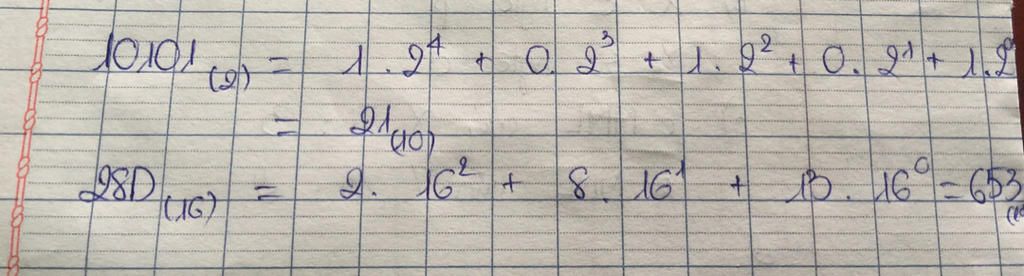 10101₍₂₎ = 1 . 2⁴ + 0 . 2³ + 1 . 2² + 0 . 2¹ + 1 . 2⁰
= 21₍₁₀₎
28D₍₁₆₎ = 2 . 16² + 8 . 16¹ + 13 . 16⁰ = 653₍₁₀